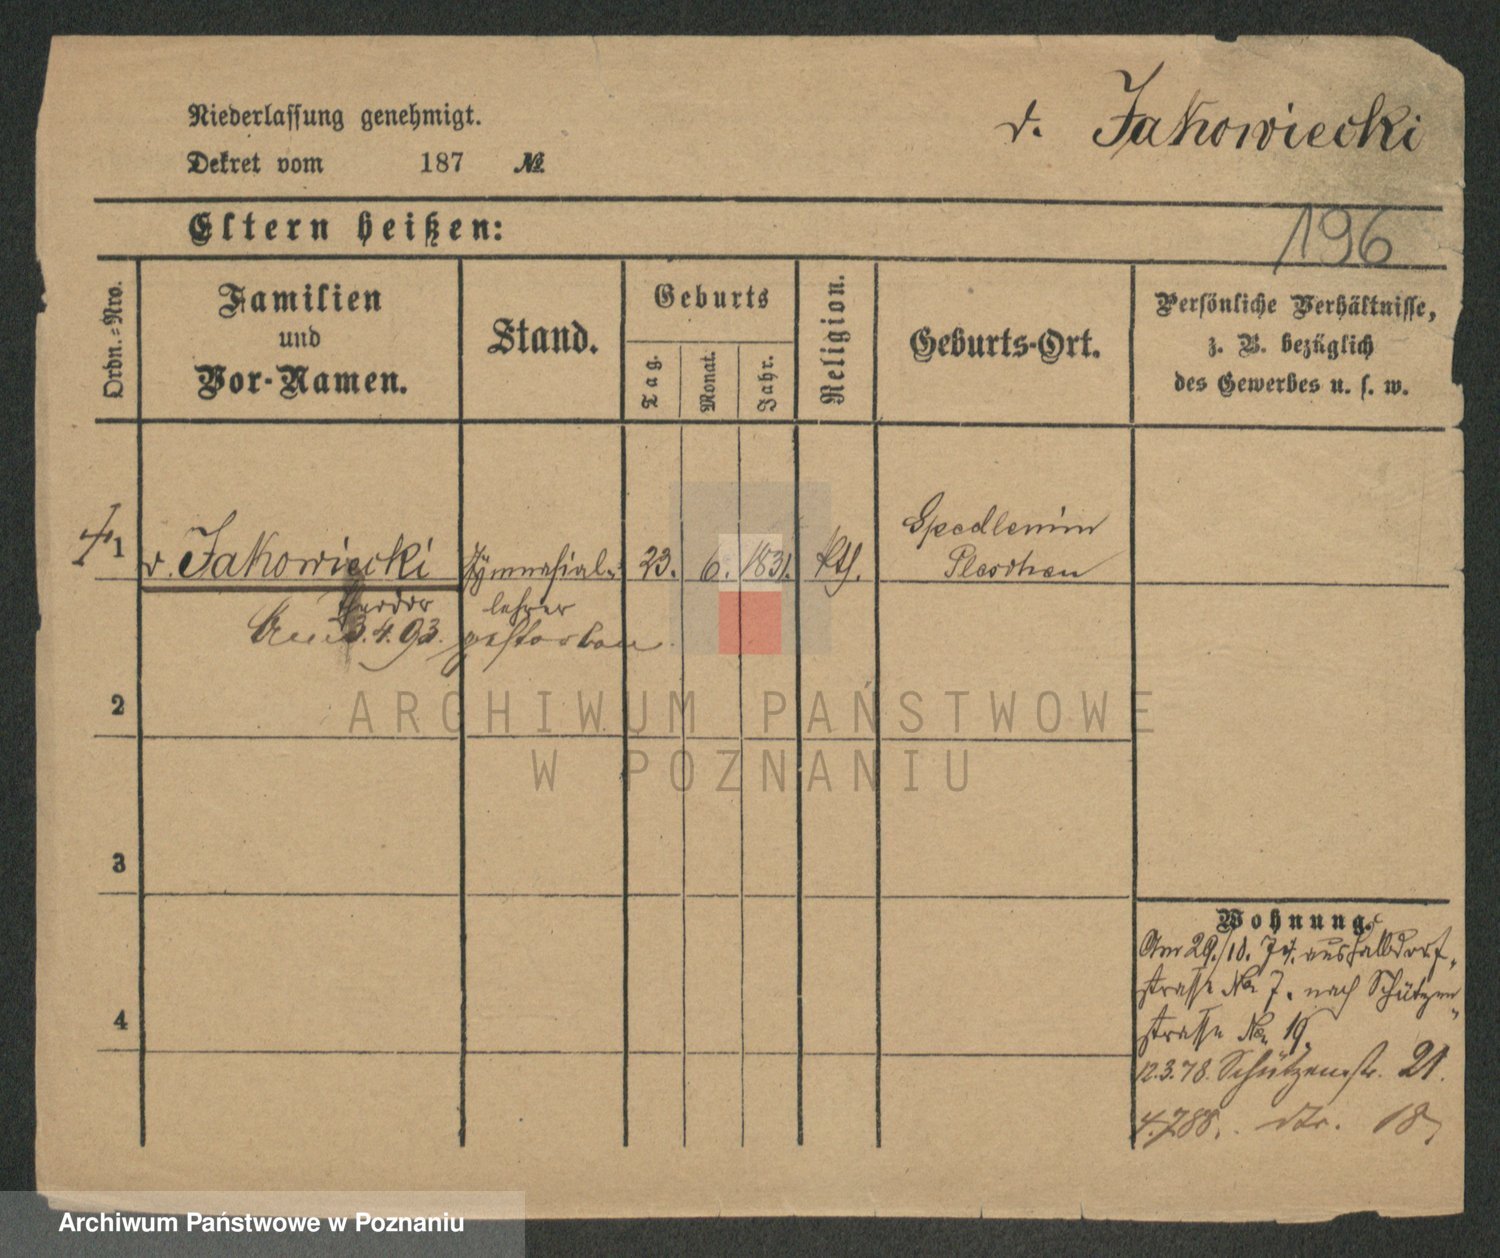 Niederlassung genehmigt.
Dekret vom 187 №
v. Jakowiecki
196
Eltern heißen:
Ordn.-Nro.
Familien
und
Vor-Namen.
Stand.
Geburts
Tag.
Monat.
Jahr.
Religion.
Geburts-Ort.
Persönliche Verhältnisse,
z. B. bezüglich
des Gewerbes u. s. w.
1
v. Jakowiecki
Theodor
Gymnasial-
lehrer
23. 6. 1831. kth.
Am 3.4.93. gestorben
Pleschen
2
3
4
Wohnung.
Am 29./10. 74. aus Halbdorf-
strasse No 7. nach Schützen-
strasse No. 19.
12.3.78. Schützenstr. 21.
4.7.88. dto. 18
ARCHIWUM PAŃSTWOWE
W POZNANIU
Archiwum Państwowe w Poznaniu